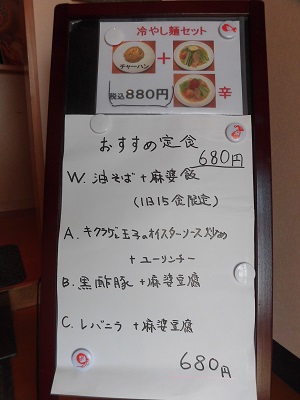 冷やし麺セット
チャーハン
+
税込880円
辛
おすすめ定食
680円
W. 油そば+麻婆飯
(1日15食限定)
A. キクラゲと玉子のオイスターソース炒め
+ユーリンチー
B. 黒酢豚+麻婆豆腐
C. レバニラ+麻婆豆腐
680円